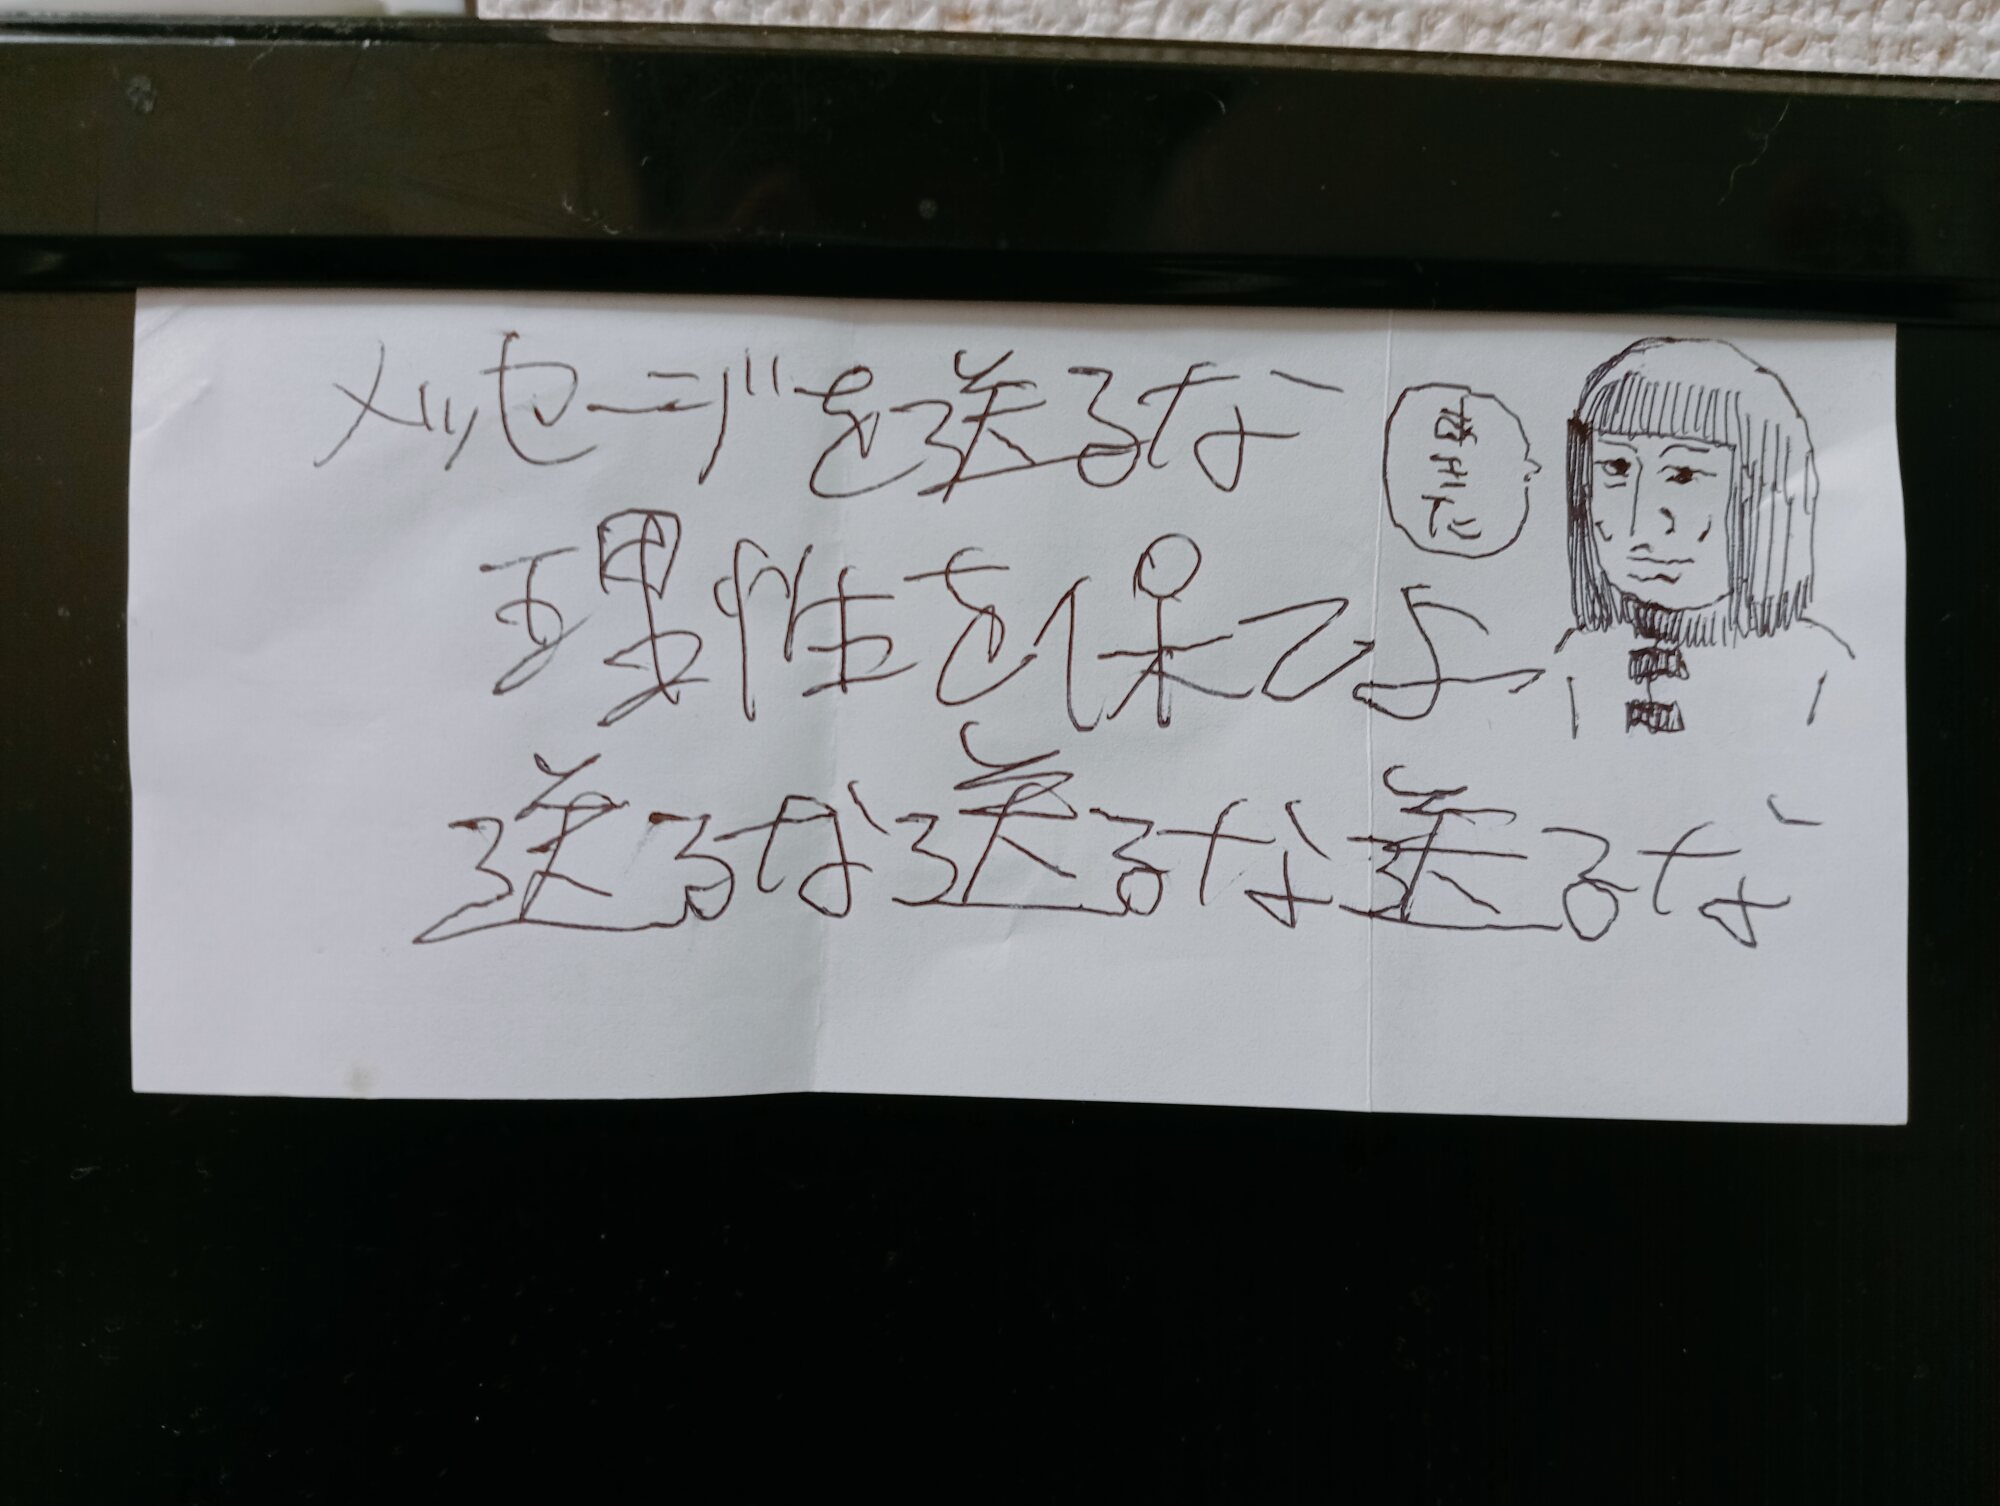 メッセージを送るな
理性を保てよ
送るな送るな送るな